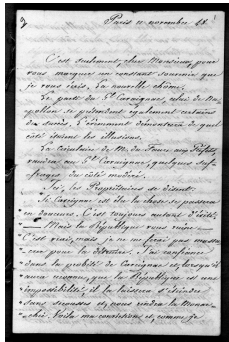 Paris 10 novembre 48.
C'est seulement, cher Monsieur, pour
vous marquer un constant souvenir que
je vous écris. La nouvelle chôme.
Le parti du Gl. Cavaignac, celui de Na-
poléon se prétendent également certains
du succès. L'événement démontrera de quel
côté étaient les illusions.
La circulaire de M. du Faure aux Préfets
vaudra au Gl. Cavaignac, quelques suf-
frages du côté modéré.
Ici, les Propriétaires se disent:
Si Cavaignac est élu la chose se passera
en douceur. C'est toujours autant d'évité.
— Mais la République vous ruine —
C'est vrai, mais je ne ferai pas massa-
crer pour la détruire. J'ai confiance
dans la probité de Cavaignac et, lorsqu'il
aura reconnu, que la République est une
impossibilité il la laissera s'éteindre
sans secousse et, nous rendra la Monar-
chie. Voilà ma conditions et, comme je